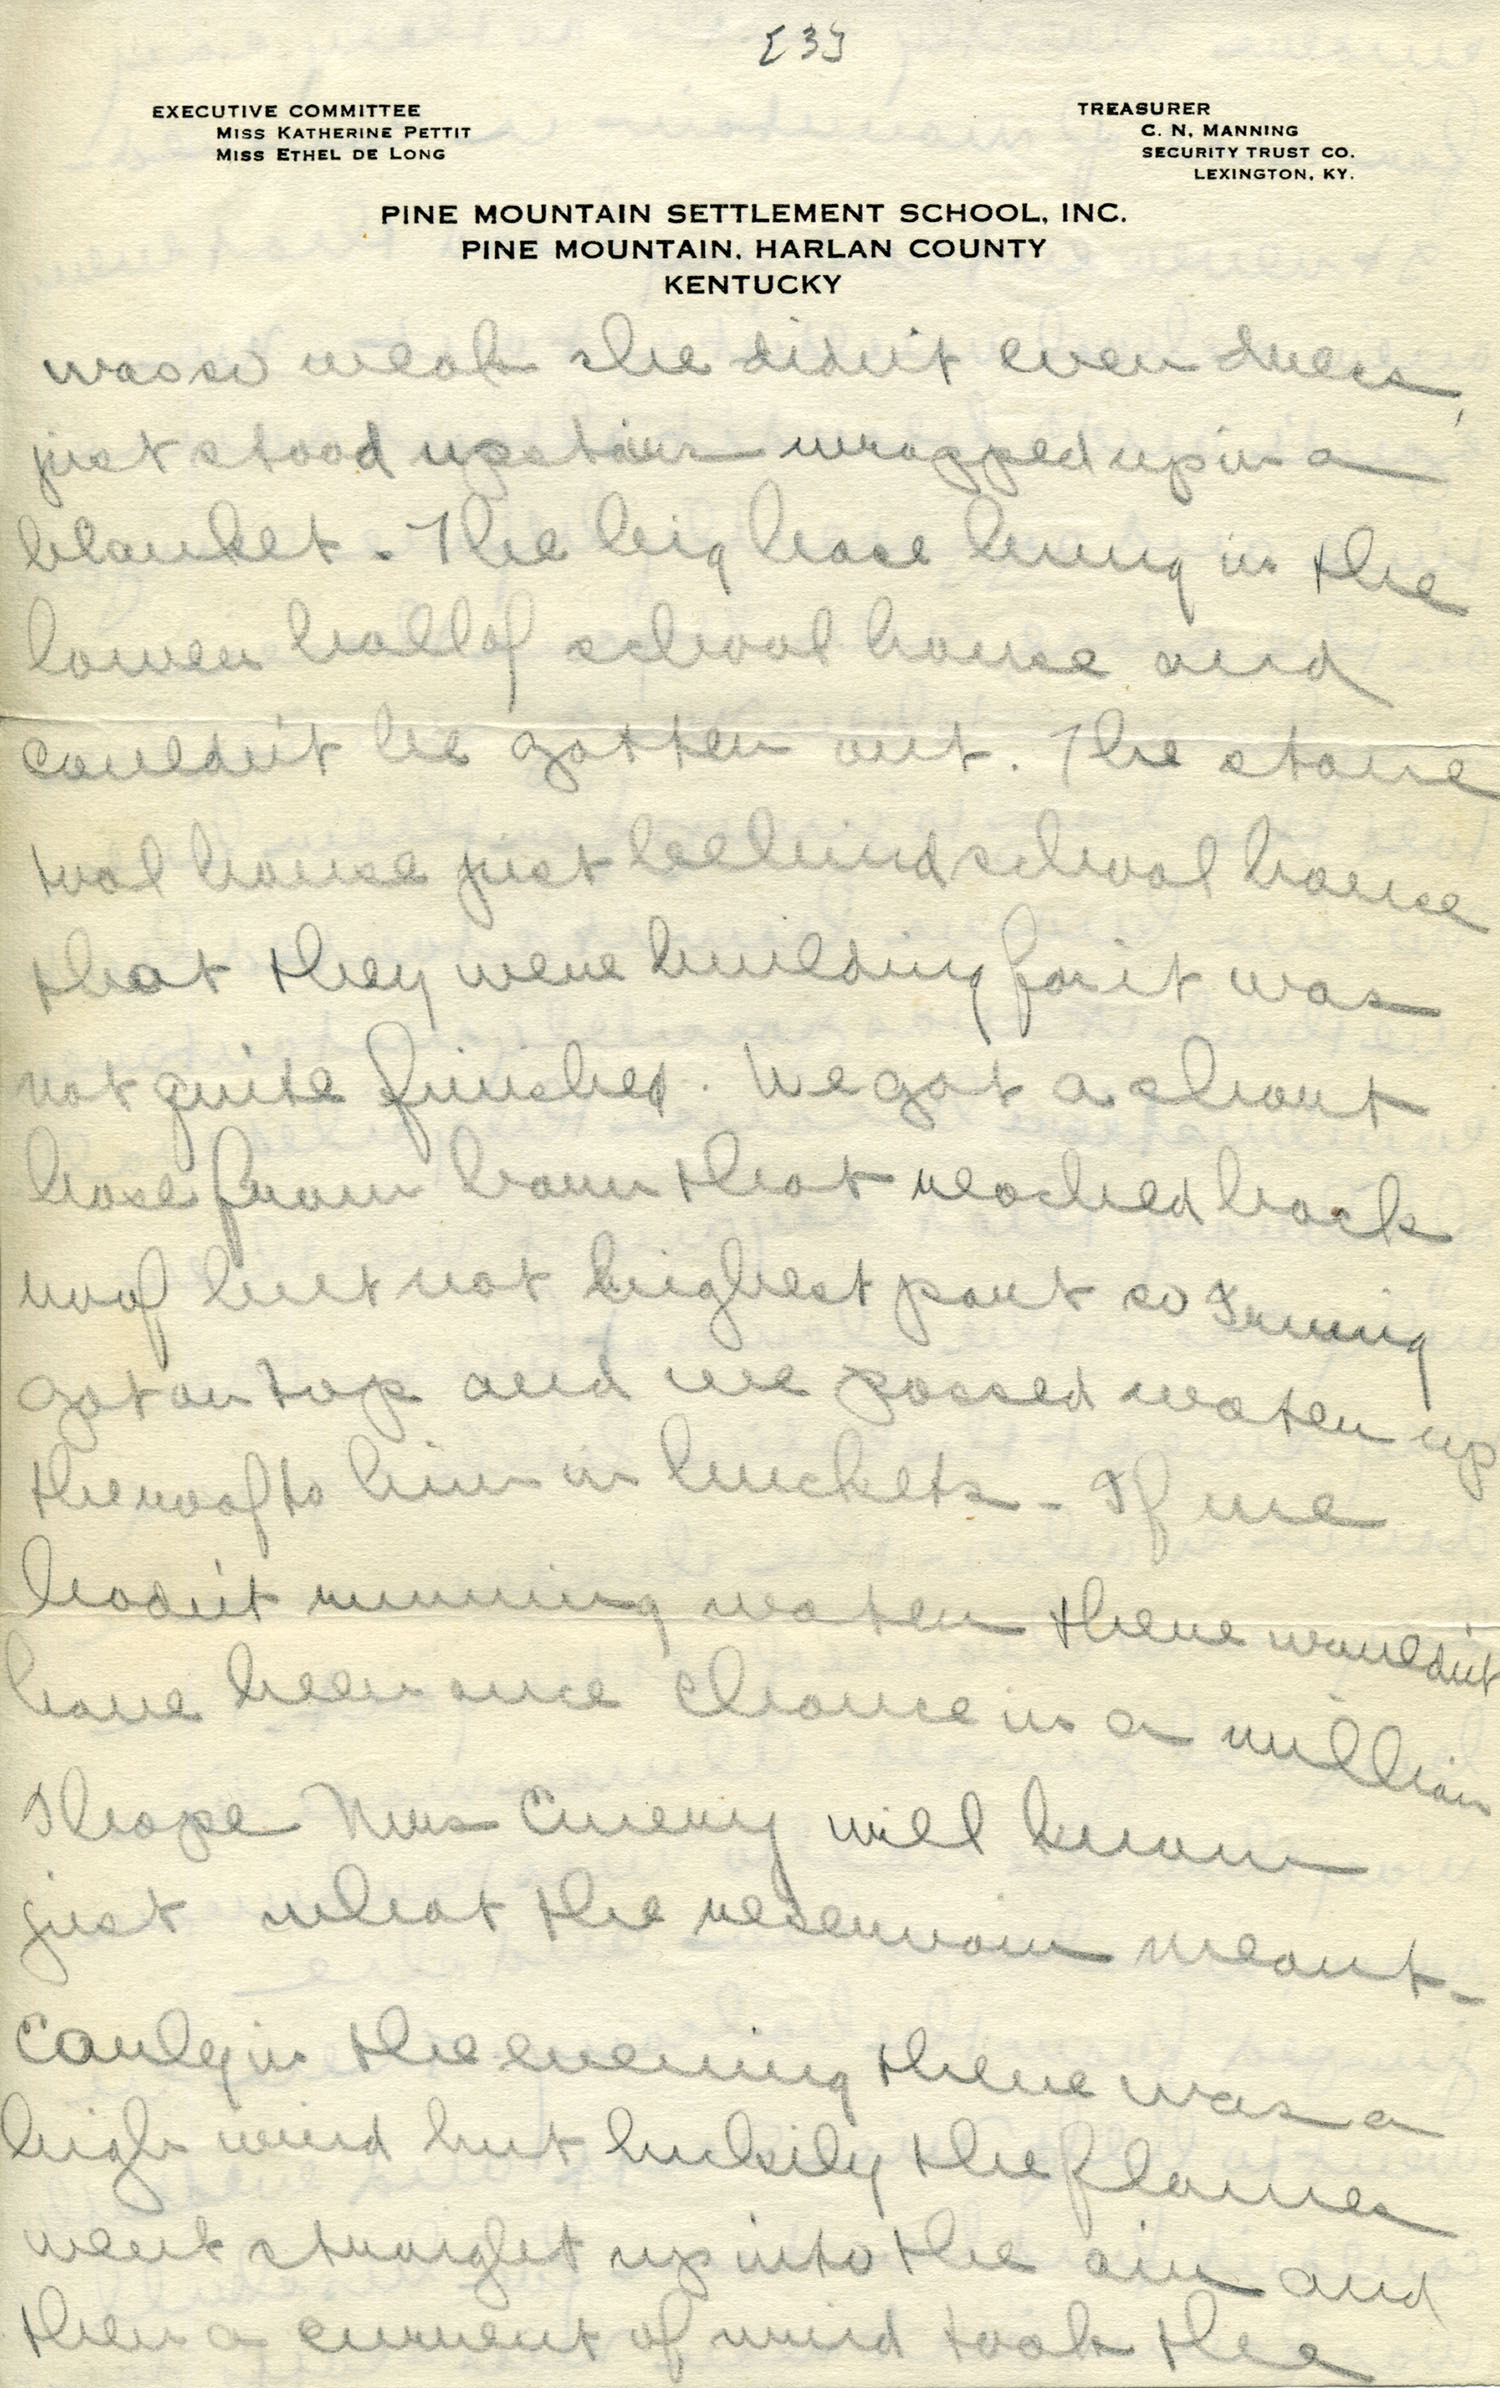 [3]
EXECUTIVE COMMITTEE
MISS KATHERINE PETTIT
MISS ETHEL DE LONG
TREASURER
C. N. MANNING
SECURITY TRUST CO.
LEXINGTON, KY.
PINE MOUNTAIN SETTLEMENT SCHOOL, INC.
PINE MOUNTAIN, HARLAN COUNTY
KENTUCKY
was so weak she didn't even dress,
just stood upstairs wrapped up in a
blanket. The big hose hung in the
lower hall of school house and
couldn't be gotten out. The stone
tool house just behind school house
that they were building for it was
not quite finished. We got a short
hose from barn that reached back
roof but not highest part so
got on top and we passed water up
the roof to him in buckets - If we
hadn't running water there wouldn't
have been once chance in a million
I hope Mrs Emery will know
just what the reservoir meant -
Early in the evening there was a
high wind but luckily the flames
went straight up into the air and
then a current of wind took the